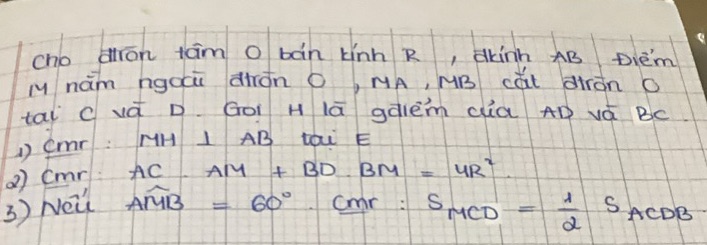 Cho đtròn tâm O bán kính R, đkính AB. Điểm
M nằm ngoài đtròn O, MA, MB cắt đtròn O
tại C và D. Gọi H là gđiểm của AD và BC.
1) Cmr: MH ⊥ AB tại E
2) Cmr: AC . AM + BD . BM = 4R²
3) Nếu \widehat{AMB} = 60°. Cmr: S_{MCD} = \frac{1}{2} S_{ACDB}